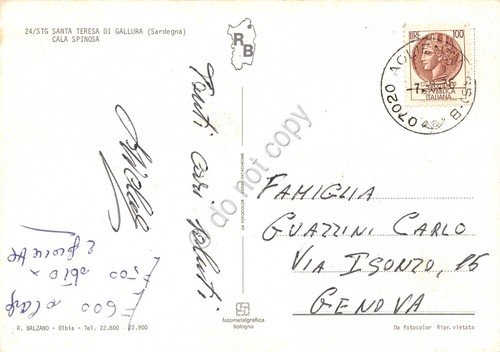 24/STG SANTA TERESA DI GALLURA (Sardegna)
CALA SPINOSA
R B
LIRE 100
REPUBBLICA
ITALIANA
07020
Tanti cari saluti
do not copy
FAMIGLIA
GUAZZINI CARLO
VIA ISONZO, 15
GENOVA
600
500
R. BALZANO - Olbia - Tel. 22.800 - 22.900
fotometalgrafica
bologna
Da fotocolor Ripr. vietata